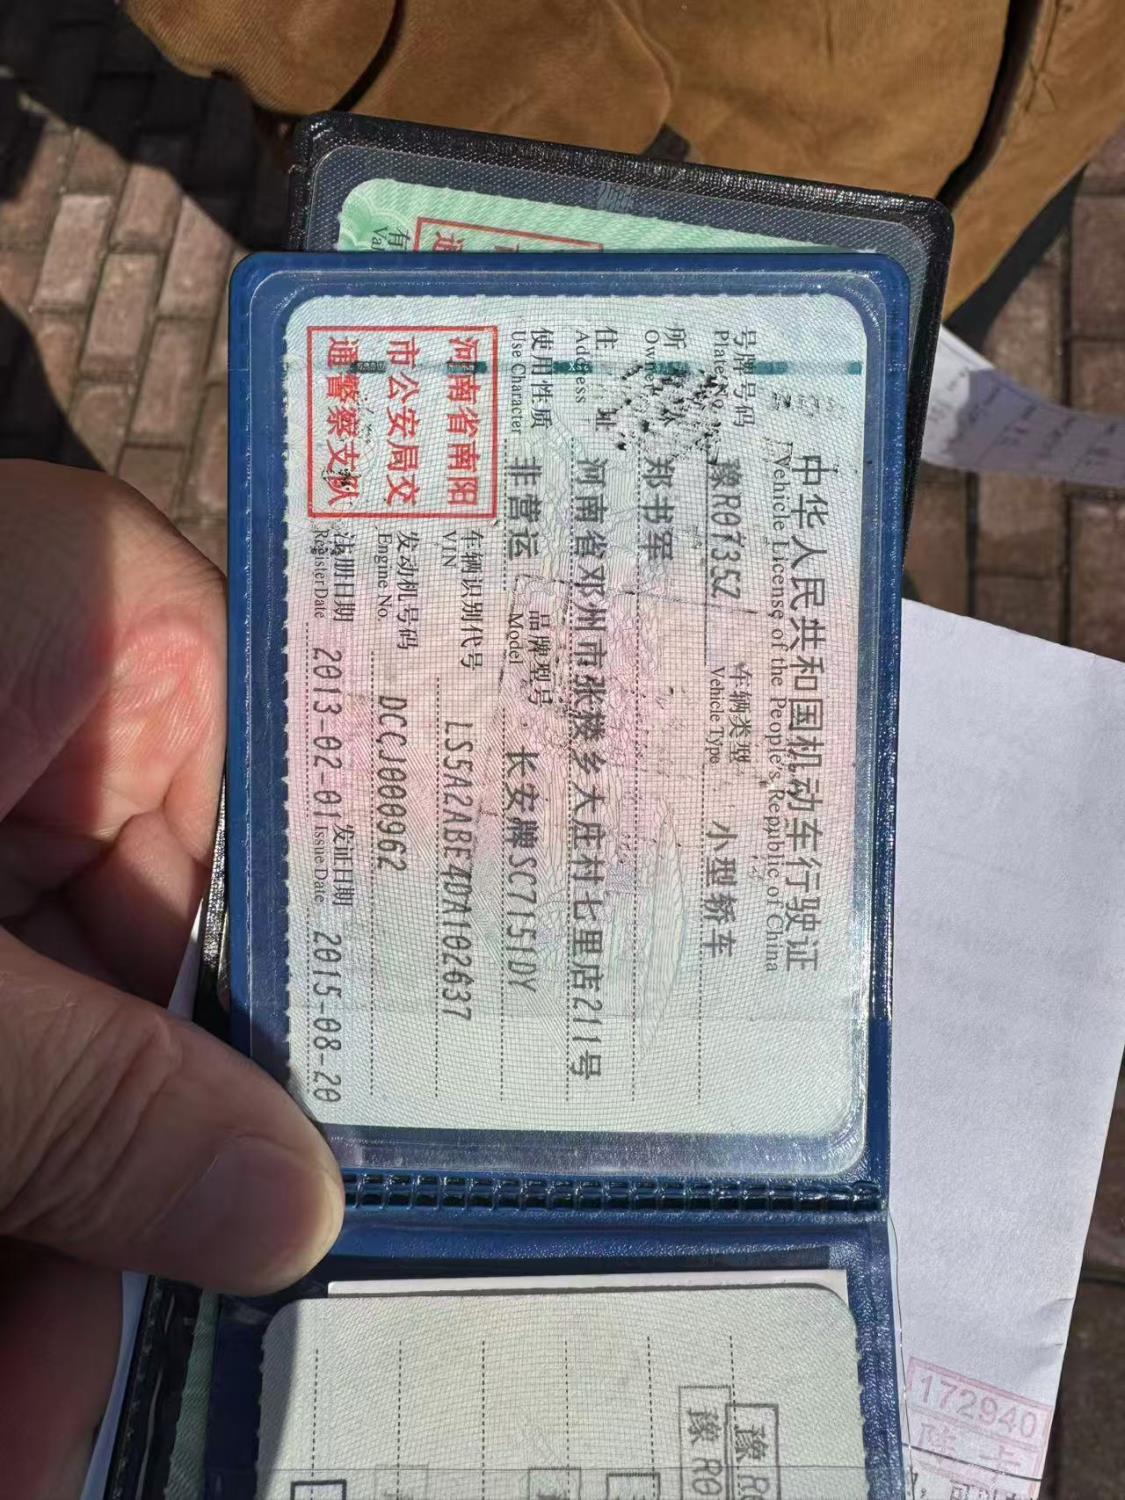 中华人民共和国机动车行驶证
Vehicle License of the People's Republic of China
号牌号码 豫R07352 车辆类型 小型轿车
Plate No. Vehicle Type
所 人 郑书军
Owner
住 址 河南省邓州市张楼乡大庄村七里店211号
Address
使用性质 非营运 品牌型号 长安牌SC7151DY
Use Character Model
河南省南阳
市公安局交
通警察支队
车辆识别代号 LS5A2ABE4DA102637
VIN
发动机号码 DCCJ000962
Engine No.
注册日期 2013-02-01 发证日期 2015-08-20
Register Date Issue Date
172940